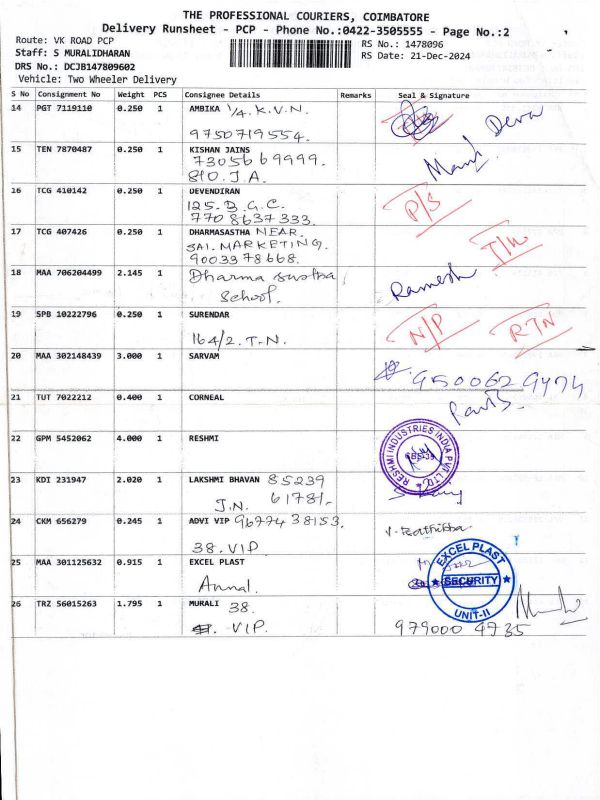 THE PROFESSIONAL COURIERS, COIMBATORE
Delivery Runsheet - PCP - Phone No.:0422-3505555 - Page No.:2
Route: VK ROAD PCP RS No.: 1478096
Staff: S MURALIDHARAN RS Date: 21-Dec-2024
DRS No.: DCJB147809602
Vehicle: Two Wheeler Delivery
S No Consignment No Weight PCS Consignee Details Remarks Seal & Signature
14 PGT 7119110 0.250 1 AMBIKA 1/4. K.V.N.
9750719554. Deva
15 TEN 7870487 0.250 1 KISHAN JAINS
7305669999.
810. J.A.
16 TCG 410142 0.250 1 DEVENDIRAN
125. B G.C. P/S
7708637333.
17 TCG 407426 0.250 1 DHARMASASTHA NEAR.
SAI. MARKETING.
9003378668.
18 MAA 706204499 2.145 1 Dharma sastha Ramesh
School.
19 SPB 10222796 0.250 1 SURENDAR
164/2. T.N. N/P RTN
20 MAA 302148439 3.000 1 SARVAM
9500629474
21 TUT 7022212 0.400 1 CORNEAL
22 GPM 5452062 4.000 1 RESHMI
RESHMI INDUSTRIES INDIA PVT LTD.
23 KDI 231947 2.020 1 LAKSHMI BHAVAN 85239
J.N. 61781-
24 CKM 656279 0.245 1 ADVI VIP 96774 38153.
38. VIP V. Rathikha
25 MAA 301125632 0.915 1 EXCEL PLAST
Annal. EXCEL PLAST SECURITY UNIT-II
26 TRZ 56015263 1.795 1 MURALI 38.
VIP. 979000 4735